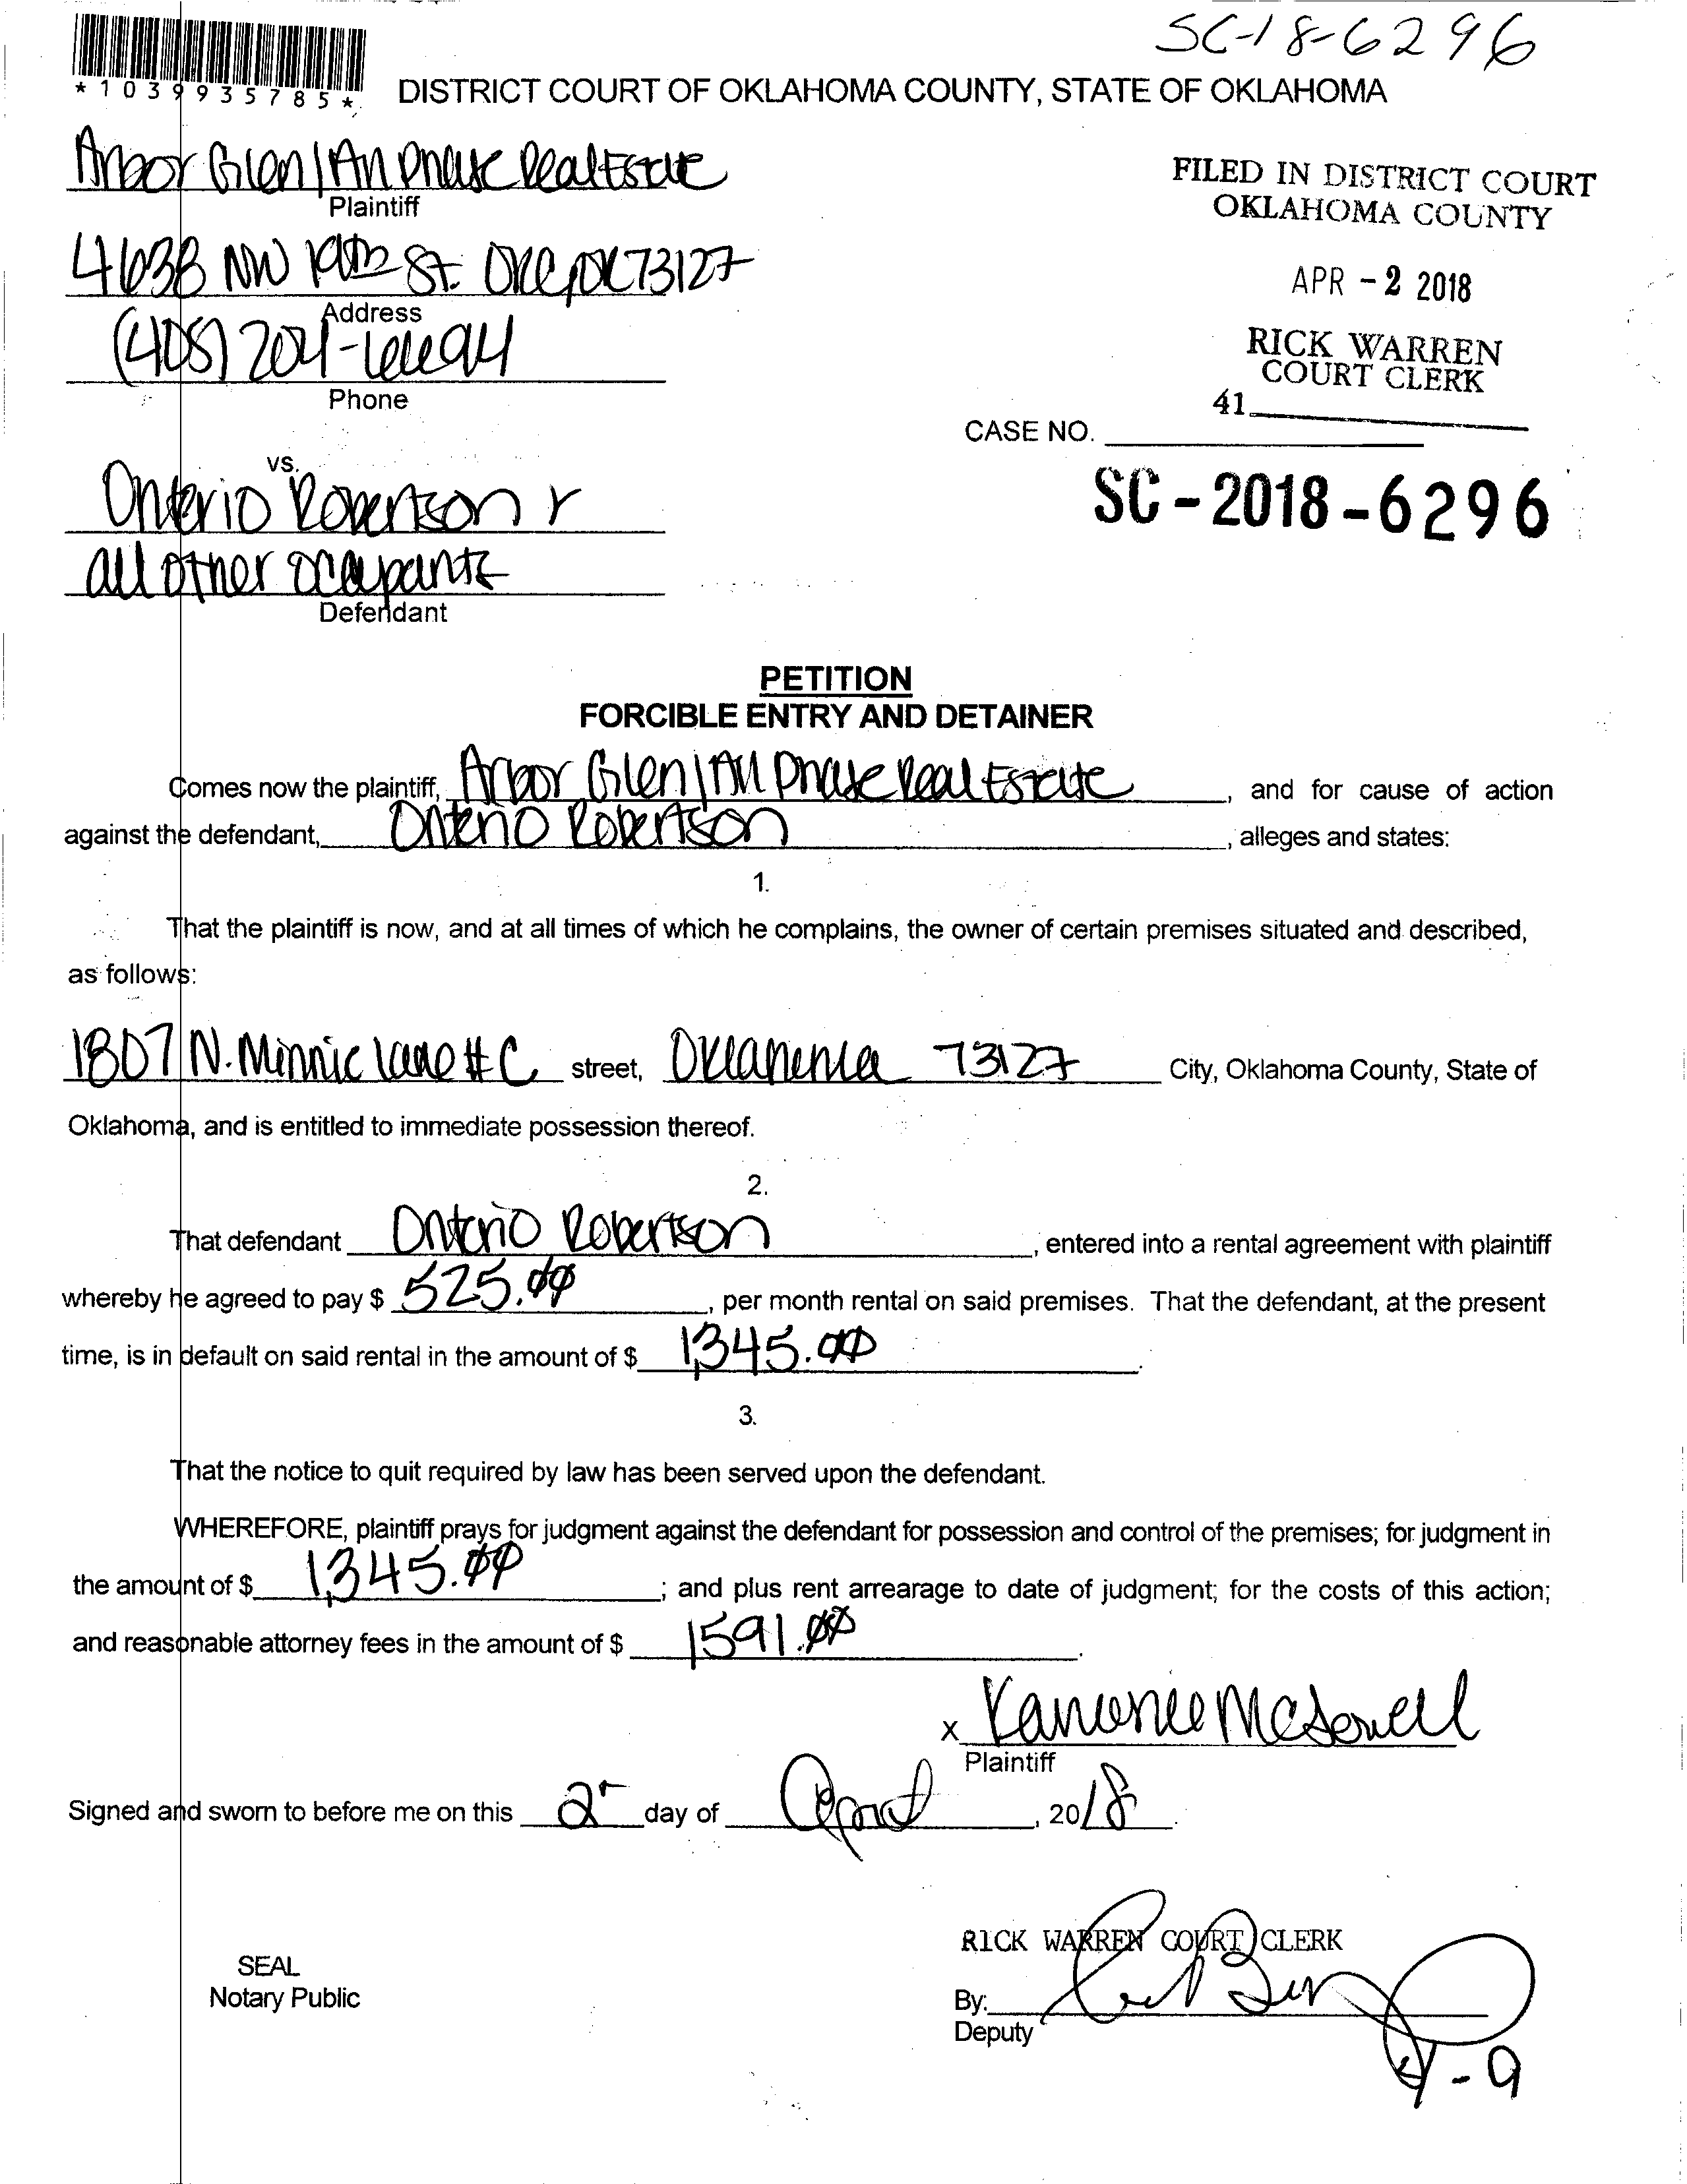 SC-18-6296
*1039935785*
DISTRICT COURT OF OKLAHOMA COUNTY, STATE OF OKLAHOMA
Arbor Glen/All Phase Real Estate
Plaintiff
FILED IN DISTRICT COURT
OKLAHOMA COUNTY
4638 NW 19th St. OKC, OK 73127
APR -2 2018
Address
(405) 204-6694
RICK WARREN
COURT CLERK
Phone
41
CASE NO.
vs.
Onterio Robertson &
SC-2018-6296
all other occupants
Defendant
PETITION
FORCIBLE ENTRY AND DETAINER
Comes now the plaintiff, Arbor Glen/All Phase Real Estate, and for cause of action
against the defendant, Onterio Robertson, alleges and states:
1.
That the plaintiff is now, and at all times of which he complains, the owner of certain premises situated and described,
as follows:
1807 N. Minnie Lane #C street, Oklahoma 73127 City, Oklahoma County, State of
Oklahoma, and is entitled to immediate possession thereof.
2.
That defendant Onterio Robertson, entered into a rental agreement with plaintiff
whereby he agreed to pay $ 525.00, per month rental on said premises. That the defendant, at the present
time, is in default on said rental in the amount of $ 1,345.00.
3.
That the notice to quit required by law has been served upon the defendant.
WHEREFORE, plaintiff prays for judgment against the defendant for possession and control of the premises; for judgment in
the amount of $ 1,345.00; and plus rent arrearage to date of judgment; for the costs of this action;
and reasonable attorney fees in the amount of $ 1591.00.
x McDowell
Plaintiff
Signed and sworn to before me on this 2 day of April, 2018.
RICK WARREN COURT CLERK
SEAL
Notary Public
By:
Deputy
4-9